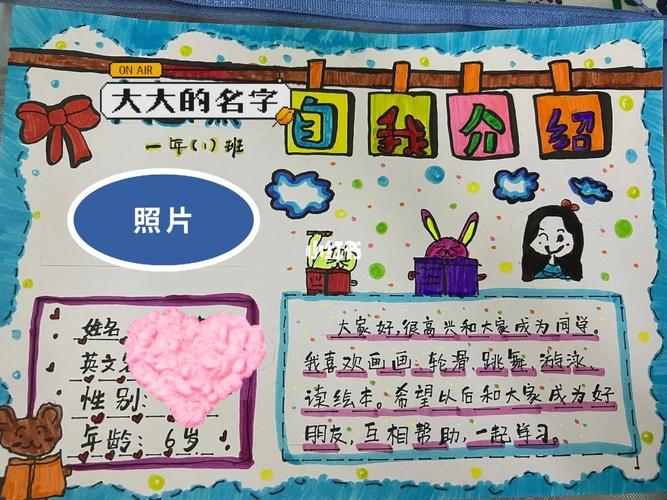 ON AIR
大大的名字
自我介绍
一年(1)班
照片
小红书
姓名
英文名
性别:
年龄:6岁
大家好,很高兴和大家成为同学。
我喜欢画画、轮滑、跳舞、游泳、
读绘本。希望以后和大家成为好
朋友,互相帮助,一起学习。